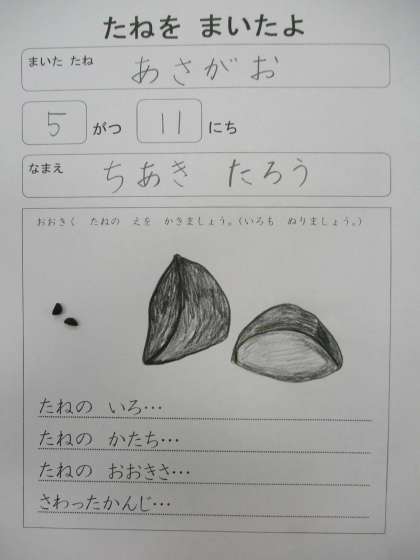 たねを まいたよ
まいた たね あさがお
5 がつ 11 にち
なまえ ちあき たろう
おおきく たねの えを かきましょう。(いろも ぬりましょう。)
たねの いろ…
たねの かたち…
たねの おおきさ…
さわったかんじ…